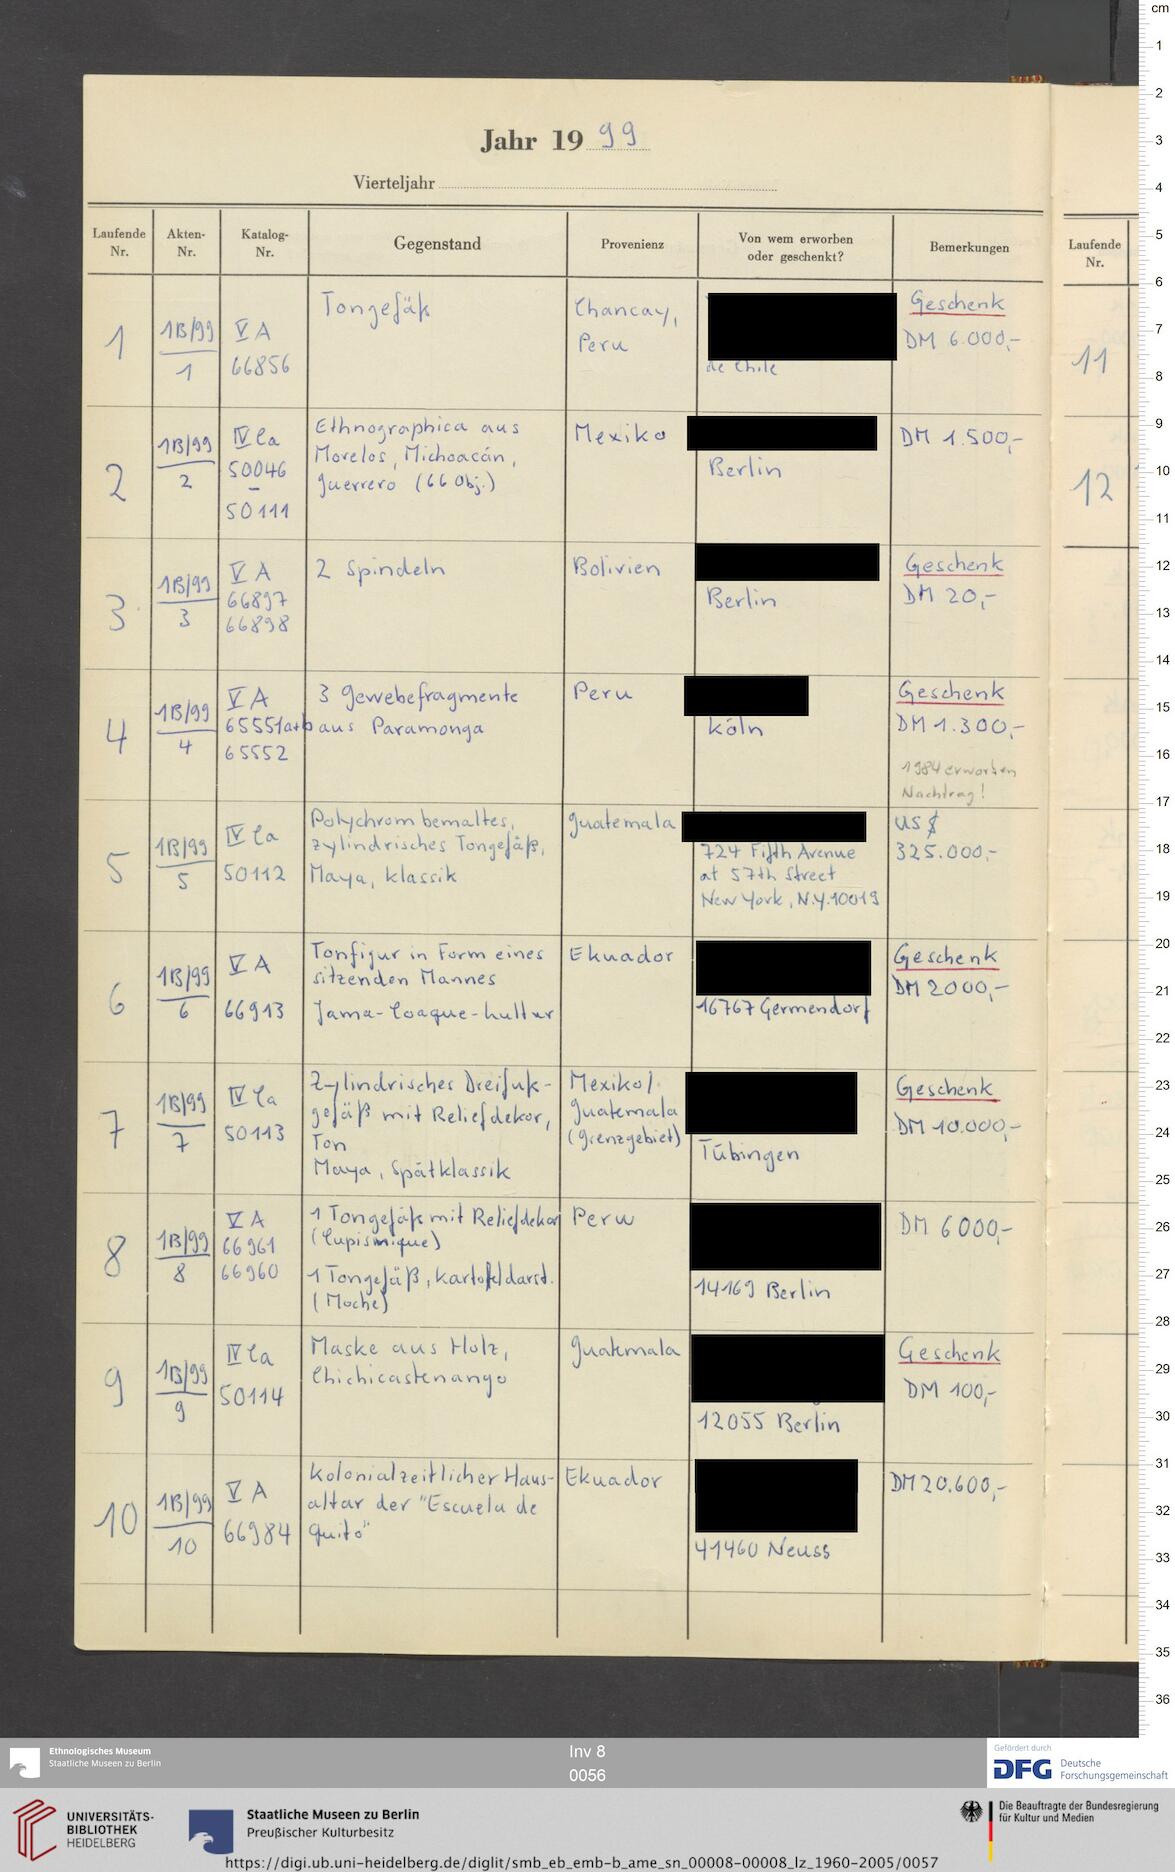 Jahr 1999
Vierteljahr
Laufende Nr.
Akten-Nr.
Katalog-Nr.
Gegenstand
Provenienz
Von wem erworben oder geschenkt?
Bemerkungen
Laufende Nr.
1
1B/99
1
V A
66856
Tongefäß
Chancay,
Peru
de Chile
Geschenk
DM 6.000,-
11
2
1B/99
2
IV Ca
50046
-
50111
Ethnographica aus
Morelos, Michoacán,
Guerrero (66 Obj.)
Mexiko
Berlin
DM 1.500,-
12
3
1B/99
3
V A
66897
66898
2 Spindeln
Bolivien
Berlin
Geschenk
DM 20,-
4
1B/99
4
V A
65551a+b
65552
3 Gewebefragmente
aus Paramonga
Peru
Köln
Geschenk
DM 1.300,-
1984 erworben
Nachtrag!
5
1B/99
5
IV Ca
50112
Polychrom bemaltes,
zylindrisches Tongefäß,
Maya, Klassik
Guatemala
724 Fifth Avenue
at 57th Street
New York, N.Y. 10019
US $
325.000,-
6
1B/99
6
V A
66913
Tonfigur in Form eines
sitzenden Mannes
Jama-Coaque-Kultur
Ekuador
16767 Germendorf
Geschenk
DM 2000,-
7
1B/99
7
IV Ca
50113
Zylindrisches Dreifuß-
gefäß mit Reliefdekor,
Ton
Maya, Spätklassik
Mexiko/
Guatemala
(Grenzgebiet)
Tübingen
Geschenk
DM 10.000,-
8
1B/99
8
V A
66961
66960
1 Tongefäß mit Reliefdekor
(Cupisnique)
1 Tongefäß, Kartoffeldarst.
(Moche)
Peru
14169 Berlin
DM 6000,-
9
1B/99
9
IV Ca
50114
Maske aus Holz,
Chichicastenango
Guatemala
12055 Berlin
Geschenk
DM 100,-
10
1B/99
10
V A
66984
Kolonialzeitlicher Haus-
altar der "Escuela de
Quito"
Ekuador
41460 Neuss
DM 20.600,-
cm
1
2
3
4
5
6
7
8
9
10
11
12
13
14
15
16
17
18
19
20
21
22
23
24
25
26
27
28
29
30
31
32
33
34
35
36
Ethnologisches Museum
Staatliche Museen zu Berlin
Inv 8
0056
Gefördert durch
DFG Deutsche
Forschungsgemeinschaft
UNIVERSITÄTS-
BIBLIOTHEK
HEIDELBERG
Staatliche Museen zu Berlin
Preußischer Kulturbesitz
Die Beauftragte der Bundesregierung
für Kultur und Medien
https://digi.ub.uni-heidelberg.de/diglit/smb_eb_emb-b_ame_sn_00008-00008_lz_1960-2005/0057